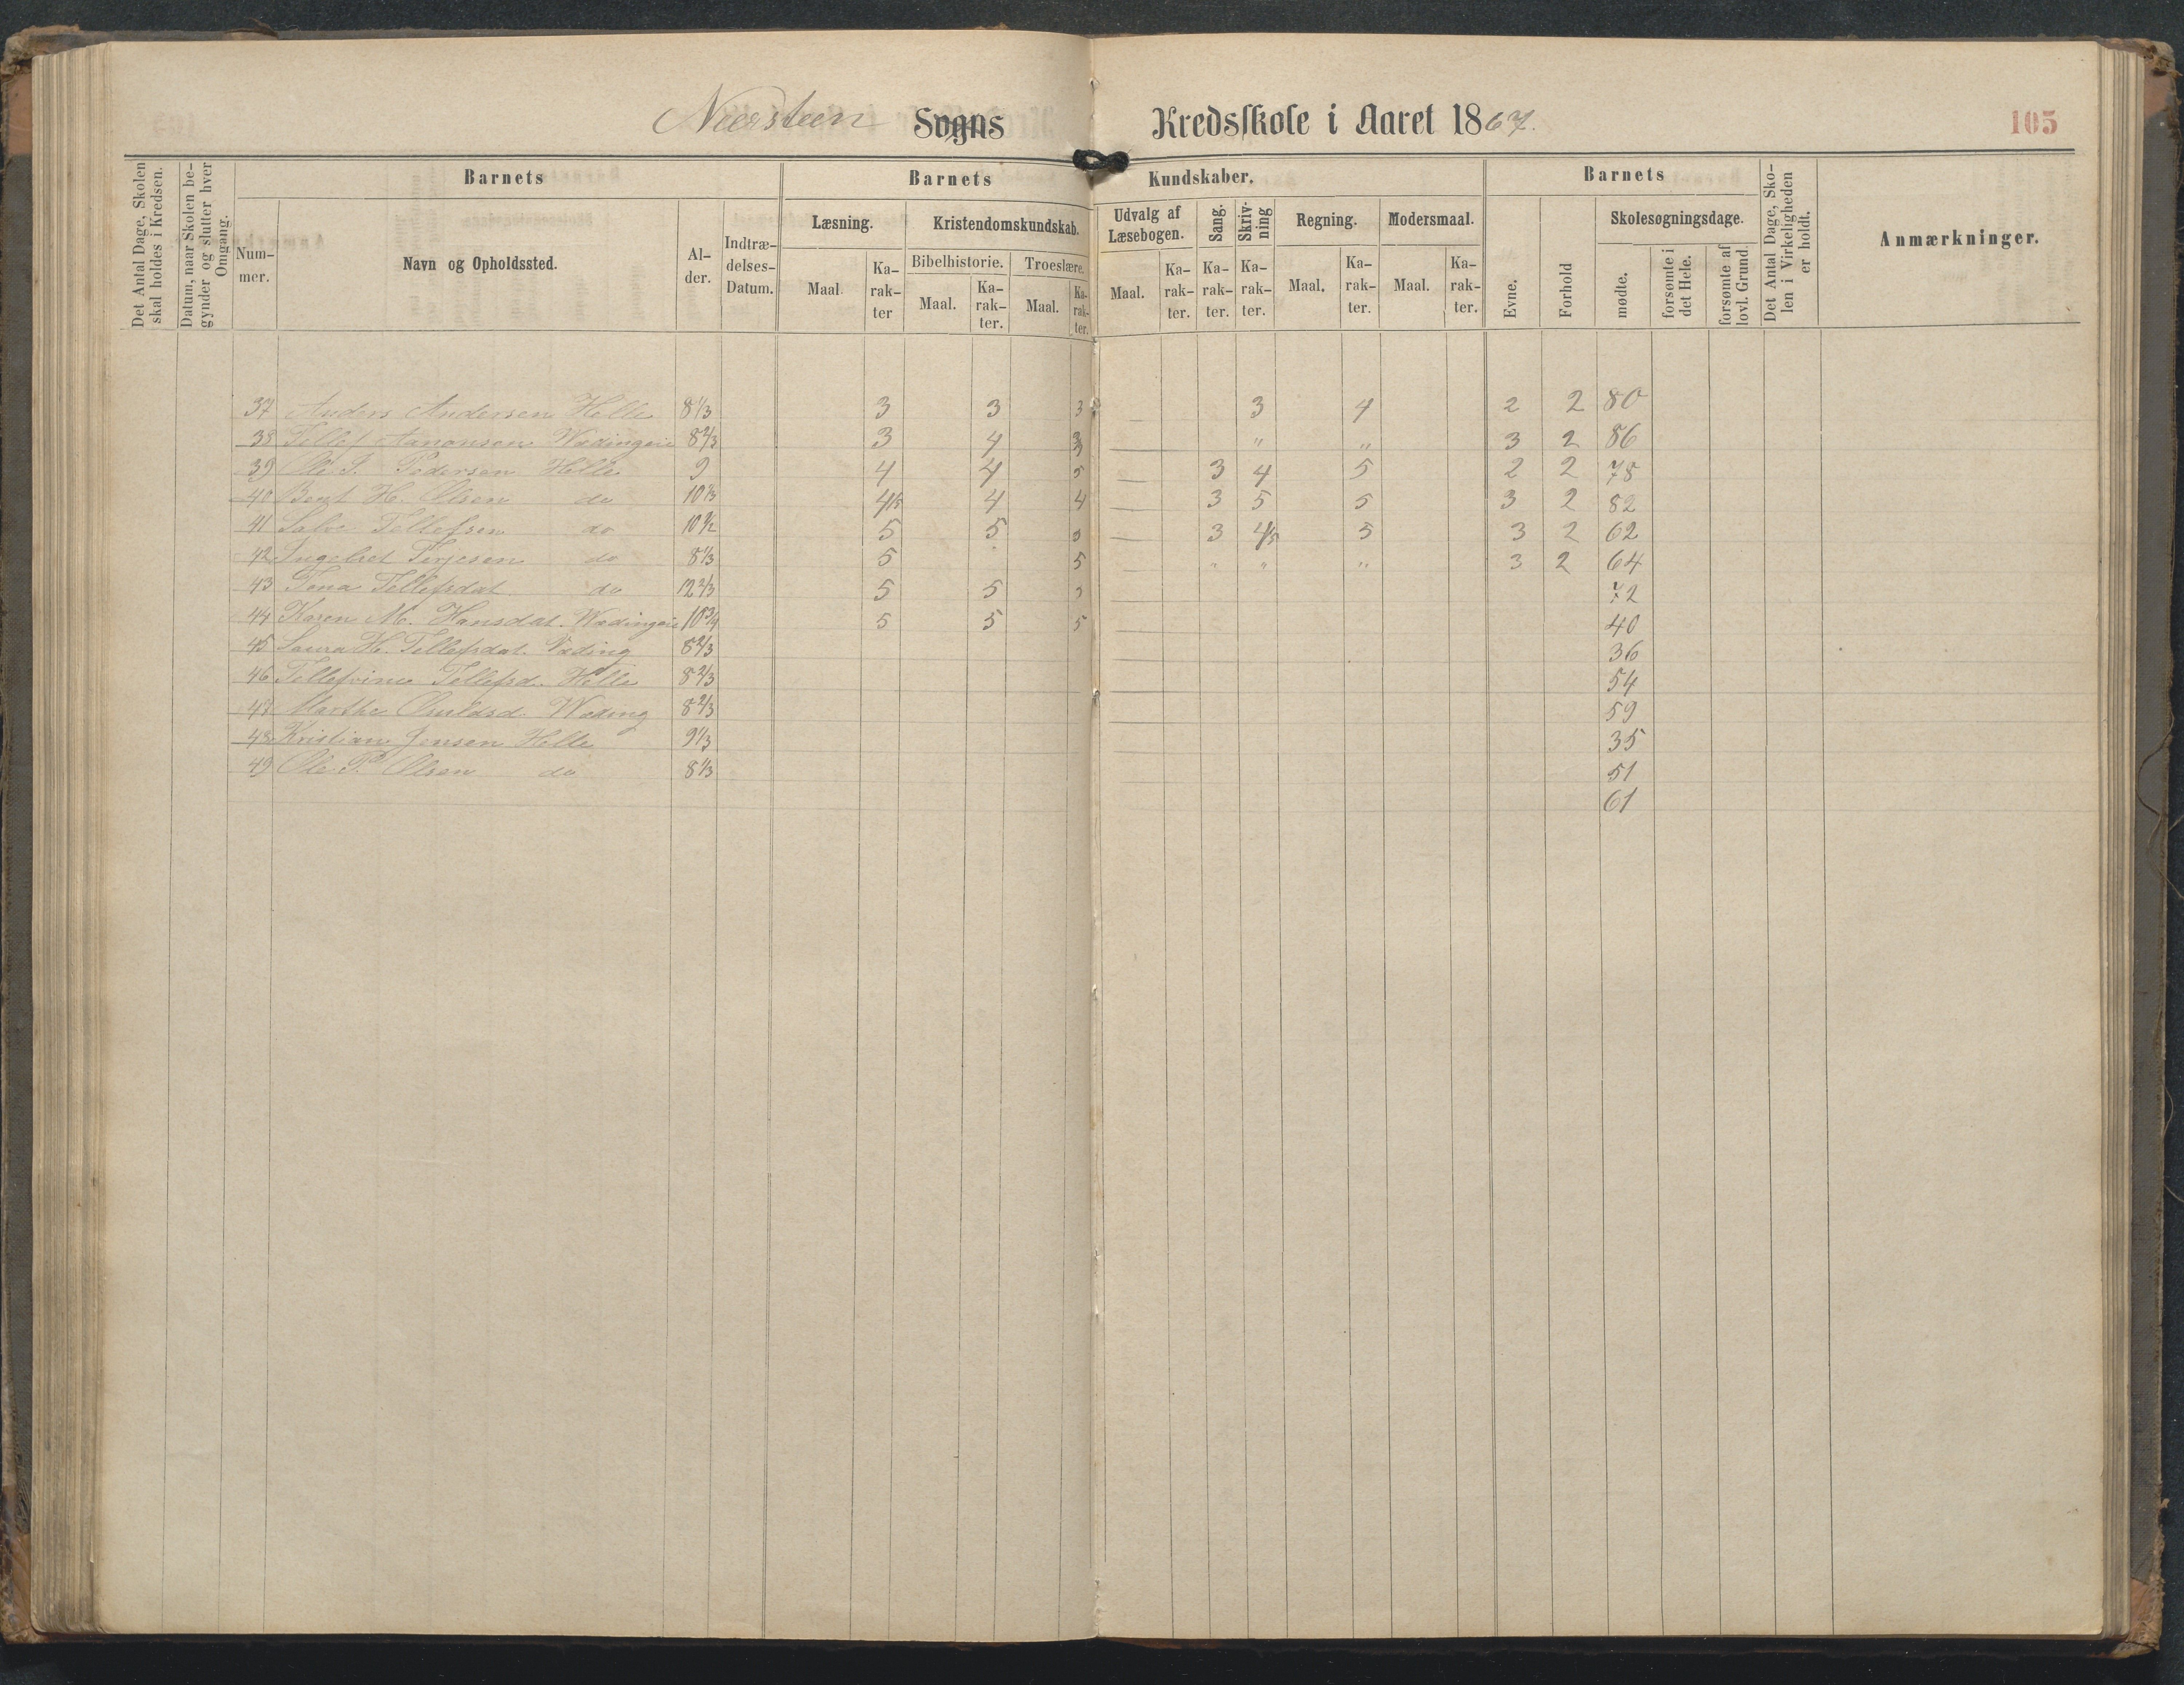 Neersteen Sogns Kredsskole i Aaret 1867.
105
Det Antal Dage, Skolen skal holdes i Kredsen.
Datum, naar Skolen begynder og slutter hver Omgang.
Barnets
Nummer.
Navn og Opholdssted.
Alder.
Indtrædelses-Datum.
Barnets Kundskaber.
Læsning.
Maal.
Karakter
Kristendomskundskab.
Bibelhistorie.
Maal.
Karakter.
Troeslære.
Maal.
Karakter.
Udvalg af Læsebogen.
Maal.
Karakter.
Sang.
Karakter.
Skrivning
Karakter.
Regning.
Maal.
Karakter.
Modersmaal.
Maal.
Karakter.
Barnets
Evne.
Forhold
Skolesøgningsdage.
mødte.
forsømte i det Hele.
forsømte af lovl. Grund.
Det Antal Dage, Skolen i Virkeligheden er holdt.
Anmærkninger.
37 Anders Andersen Helle 8 1/3 3 3 3 3 4 2 2 80
38 Tellef Aanonsen Wædingeie 8 2/3 3 4 " " 3 2 86
39 Ole J. Pedersen Helle 9 4 4 5 3 4 5 2 2 78
40 Bent H. Olsen do 10 2/3 4/5 4 4 3 5 5 3 2 82
41 Salve Tellefsen do 10 1/2 5 5 5 3 4/5 5 3 2 62
42 Ingebret Terjesen do 8 1/3 5 5 " " " 3 2 64
43 Tona Tellefsdat. do 12 2/3 5 5 5 72
44 Karen M. Hansdat. Wædingeie 10 3/4 5 5 5 40
45 Laura W. Tellefsdat. Væding 8 2/3 36
46 Tellefine Tellefsd. Helle 8 2/3 54
47 Marthe Wæding 8 2/3 59
48 Kristian Jensen Helle 9 1/3 35
49 Ole P. Olsen do 8 1/3 51
61